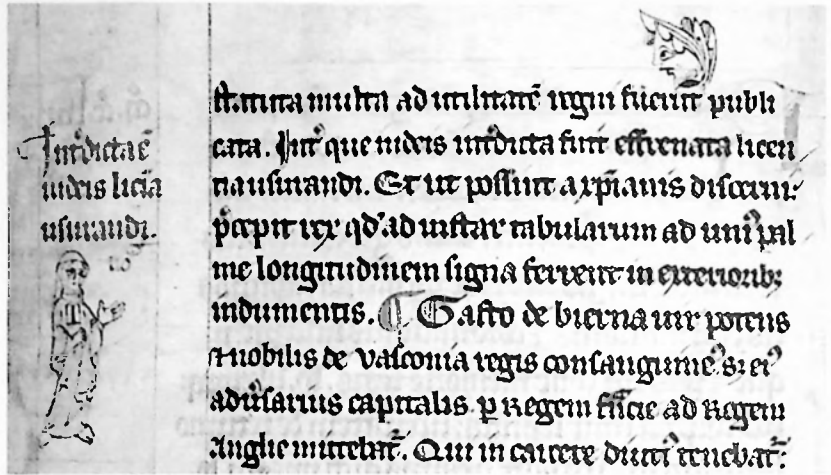 Int̾dicta ē
iudeis licīa
usurandi.
statuta multa ad utilitatē regni fuerūt publi
cata. Int̾ que iudeis int̾dicta fuit effrenata licen
tia usurandi. Et ut possint a xp̄ianis discerni:
p̄cepit rex qd̾ ad instar tabularum ad uni᷒ pal
me longitudinem signa ferrent in exteriorib;
indumentis. ¶ Gasto de bierna uir potens
⁊ nobilis de vasconia regis consanguine᷒. s; ei᷒
adu̾sarius capitalis p̱ Regem frācie ad Regem
Anglie mittebat̾. Qui in carcere diuti᷒ tenebat̾: